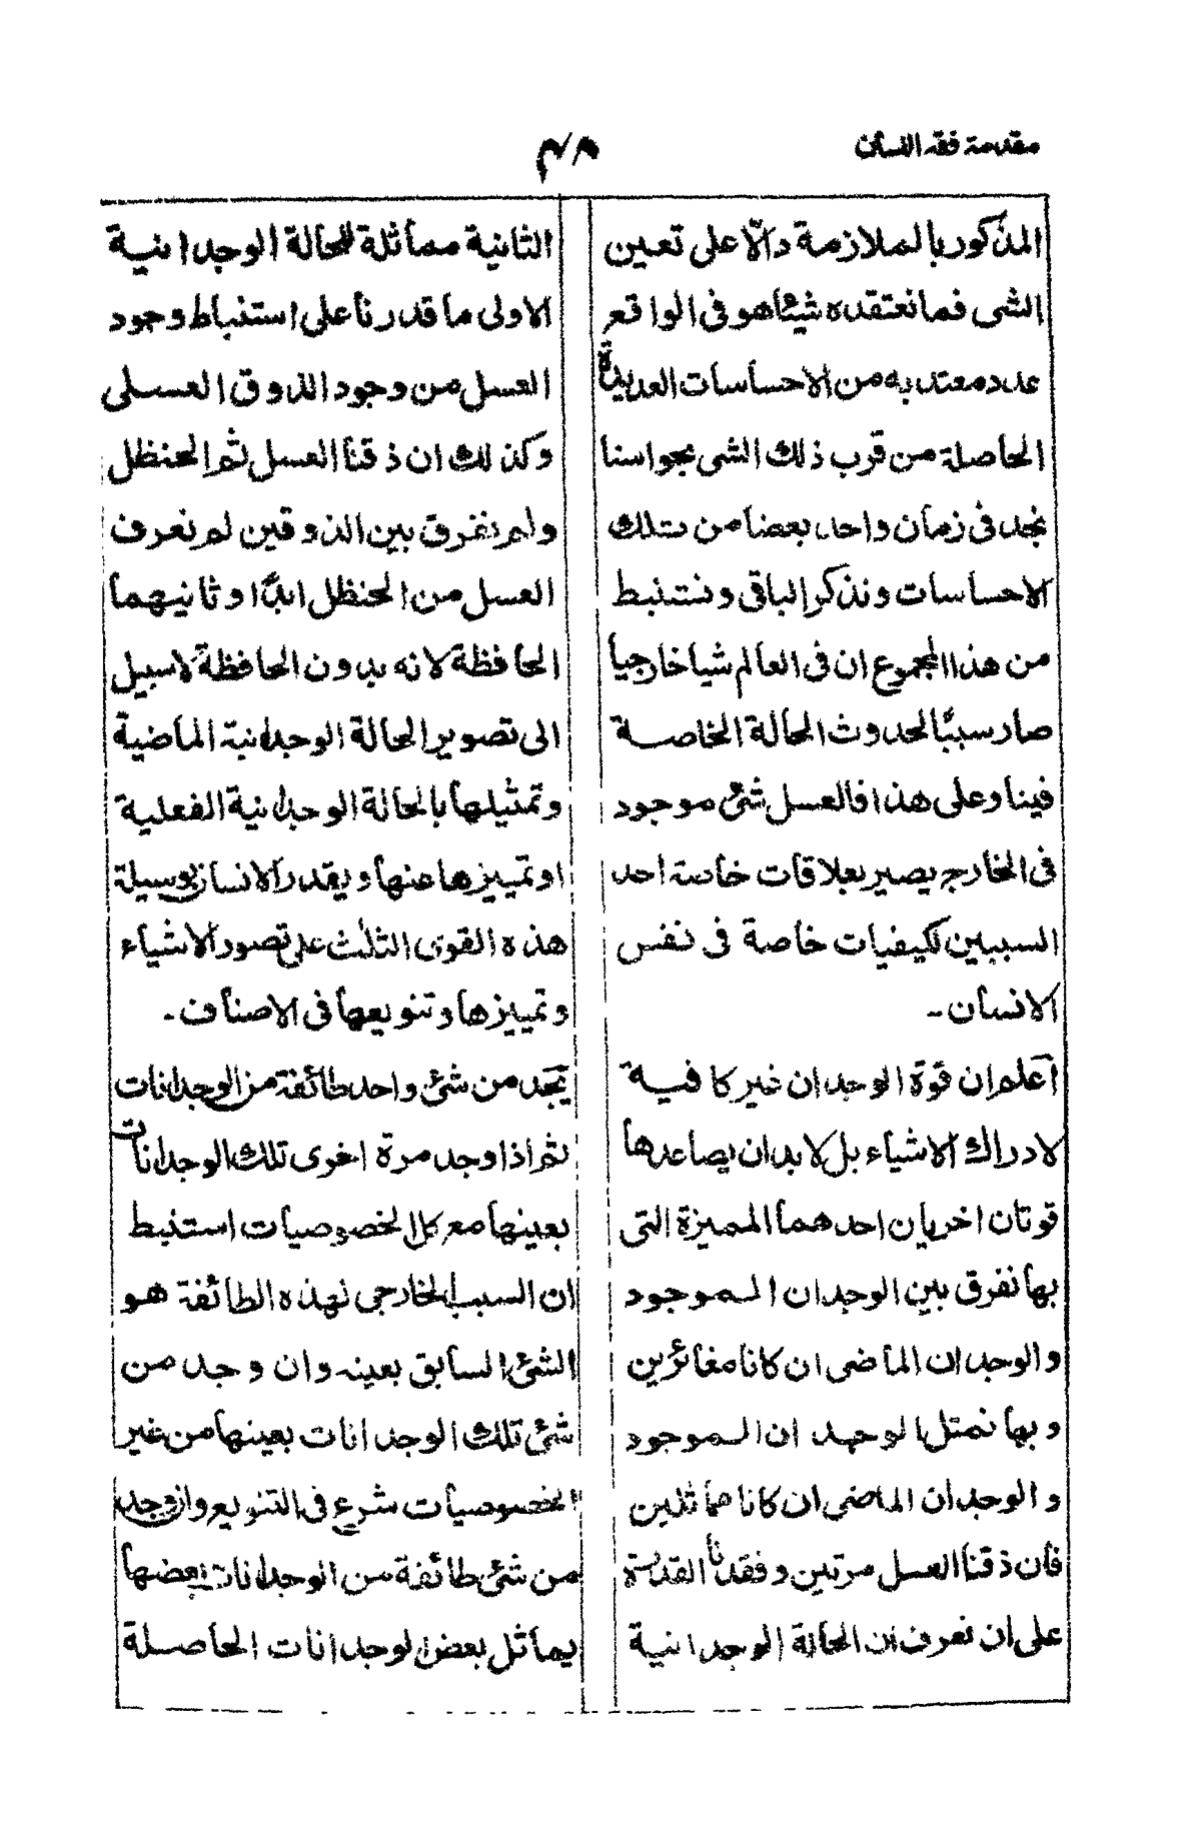 مقدمة فقه اللسان
المذكور بالملازمة دالّا على تعين
الشى فما نعتقده شيئًا هو فى الواقع
عدد معتد به من الاحساسات العديدة
الحاصلة من قرب ذلك الشى بحواسنا
نجد فى زمان واحد بعضا من تلك
الاحساسات ونذكر الباقى ونستنبط
من هذا المجموع ان فى العالم شيا خارجياً
صار سببًا لحدوث الحالة الخاصة
فينا وعلى هذا فالعسل شئ موجود
فى الخارج يصير بعلاقات خاصة احد
السببين لكيفيات خاصة فى نفس
الانسان -
اعلم ان قوة الوجدان غير كافية
لادراك الاشياء بل لابد ان يصاعدها
قوتان اخريان احدهما المميزة التى
بها نفرق بين الوجدان الموجود
والوجدان الماضى ان كانا مغائرين
وبها نمثل الوجدان الموجود
والوجدان الماضى ان كانا مماثلين
فان ذقنا العسل مرتين وفقدنا القدرة
على ان نعرف ان الحالة الوجدانية
الثانية مماثلة للحالة الوجدانية
الاولى ما قدرنا على استنباط وجود
العسل من وجود الذوق العسلى
وكذلك ان ذقنا العسل ثم الحنظل
ولم نفرق بين الذوقين لم نعرف
العسل من الحنظل ابدًا وثانيهما
الحافظة لانه بدون الحافظة لا سبيل
الى تصوير الحالة الوجدانية الماضية
وتمثيلها بالحالة الوجدانية الفعلية
او تمييزها عنها ويقدر الانسان بوسيلة
هذه القوى الثلث على تصور الاشياء
وتمييزها وتنويعها فى الاصناف -
نجد من شئ واحد طائفة من الوجدانات
ثم اذا وجد مرة اخرى تلك الوجدانات
بعينها مع كل الخصوصيات استنبط
ان السبب الخارجى لهذه الطائفة هو
الشئ السابق بعينه وان وجد من
شئ تلك الوجدانات بعينها من غير
الخصوصيات شرع فى التنويع وان وجد
من شئ طائفة من الوجدانات بعضها
يماثل بعض الوجدانات الحاصلة